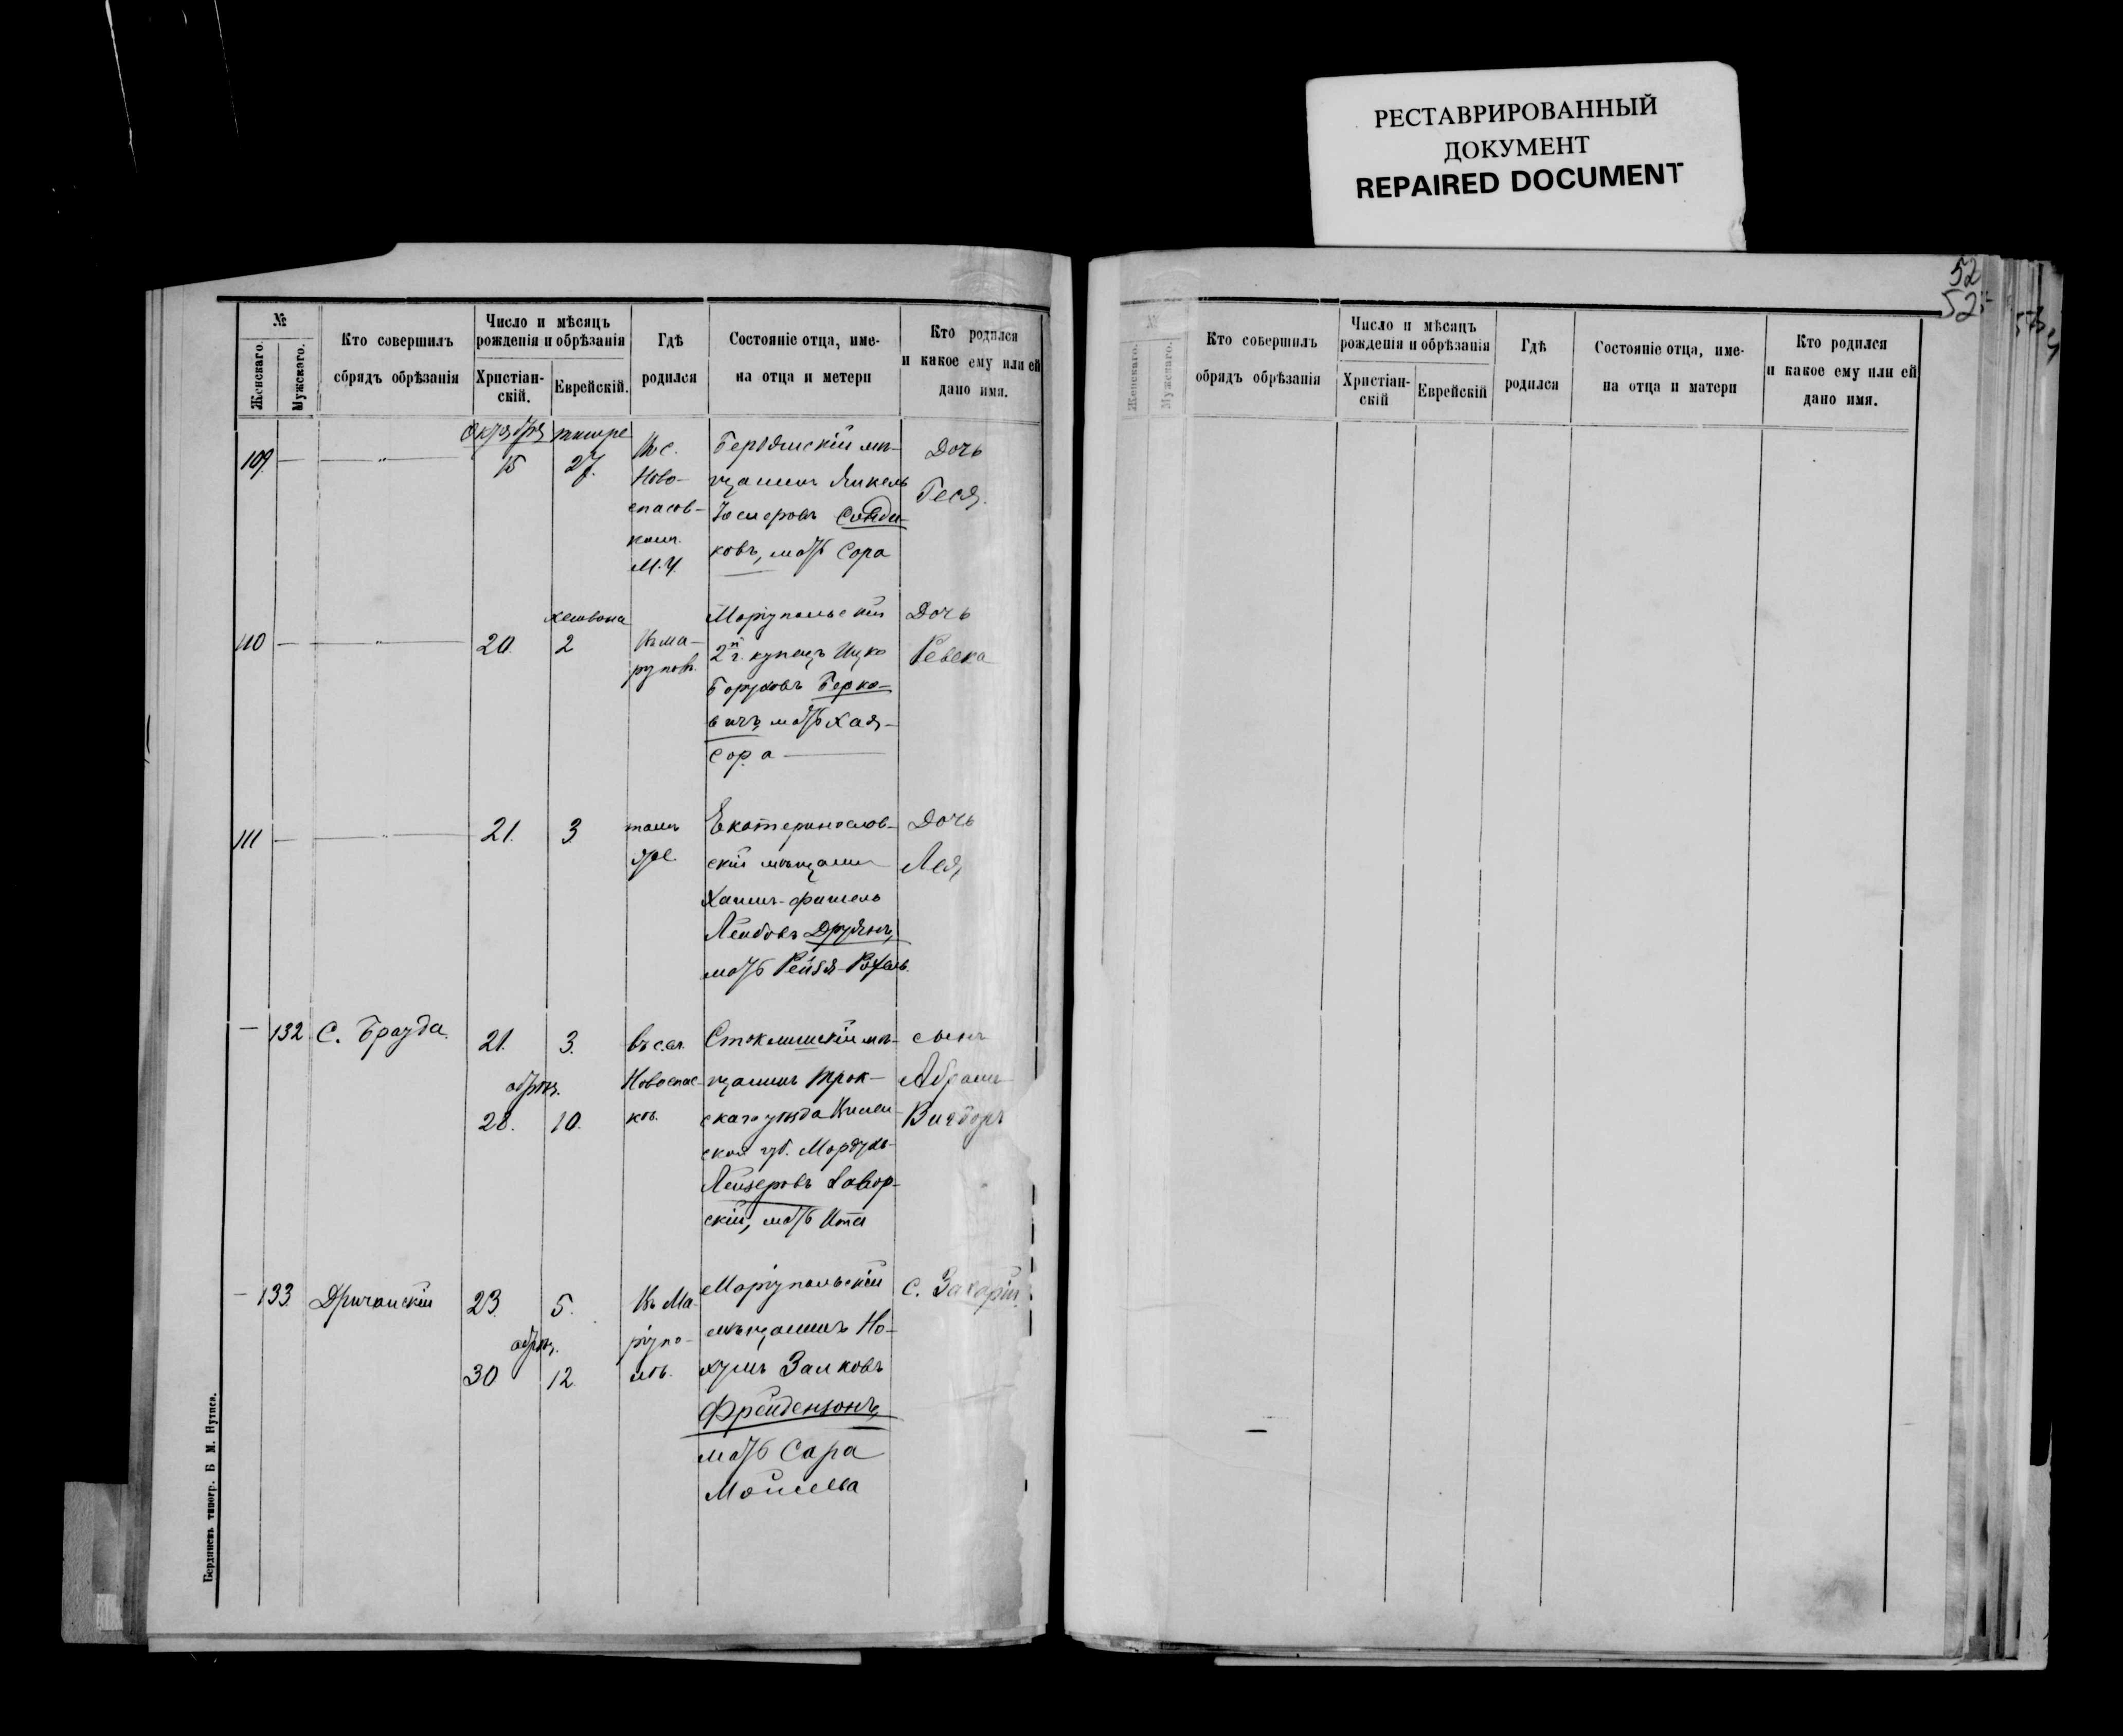 РЕСТАВРИРОВАННЫЙ
ДОКУМЕНТ
REPAIRED DOCUMENT
52
52
№
Женскаго.
Мужскаго.
Кто совершилъ
обрядъ обрѣзанія
Число и мѣсяцъ
рожденія и обрѣзанія
Христіан-
скій.
Еврейскій.
Гдѣ
родился
Состояніе отца, име-
на отца и метери
Кто родился
и какое ему или ей
дано имя.
109
Октября
15
тишре
27.
Въ с.
Ново-
спасов-
М. У.
Бердянскій мѣ-
щанинъ Янкель
ковъ, мать Сора
Дочь
Геся.
110
20.
хешвона
2
Въ Ма-
Маріупольскій
2й г. купецъ Ицко
Боруховъ Берко-
вичъ, мать Хая-
Сора
Дочь
Ревека
111
21.
3
тамъ
же
Екатеринослав-
скій мѣщанин
Хаимъ-Фишель
Лейбовъ
мать Рейзя-Рохель.
Дочь
Лея,
132
С. Брауда.
21.
3.
обрѣз.
28.
10.
въ сел.
Новоспас-
кѣ.
Стоклишскій мѣ-
щанинъ Трок-
скаго уѣзда Вилен-
ской губ. Мордухъ-
Лейзеровъ
скій, мать Ита
сынъ
Абрамъ
Вигдоръ
133.
23.
5.
обрѣз.
30
12
Въ Ма-
ріупо-
лѣ.
Маріупольскій
мѣщанинъ Но-
хумъ Залковъ
Фрейдензонъ,
мать Сара
С. Захарій
Бердянскъ типогр. Б М.
№
Женскаго.
Мужскаго.
Кто совершилъ
обрядъ обрѣзанія
Число и мѣсяцъ
рожденія и обрѣзанія
Христіан-
скій
Еврейскій
Гдѣ
родился
Состояніе отца, име-
на отца и матери
Кто родился
и какое ему или ей
дано имя.